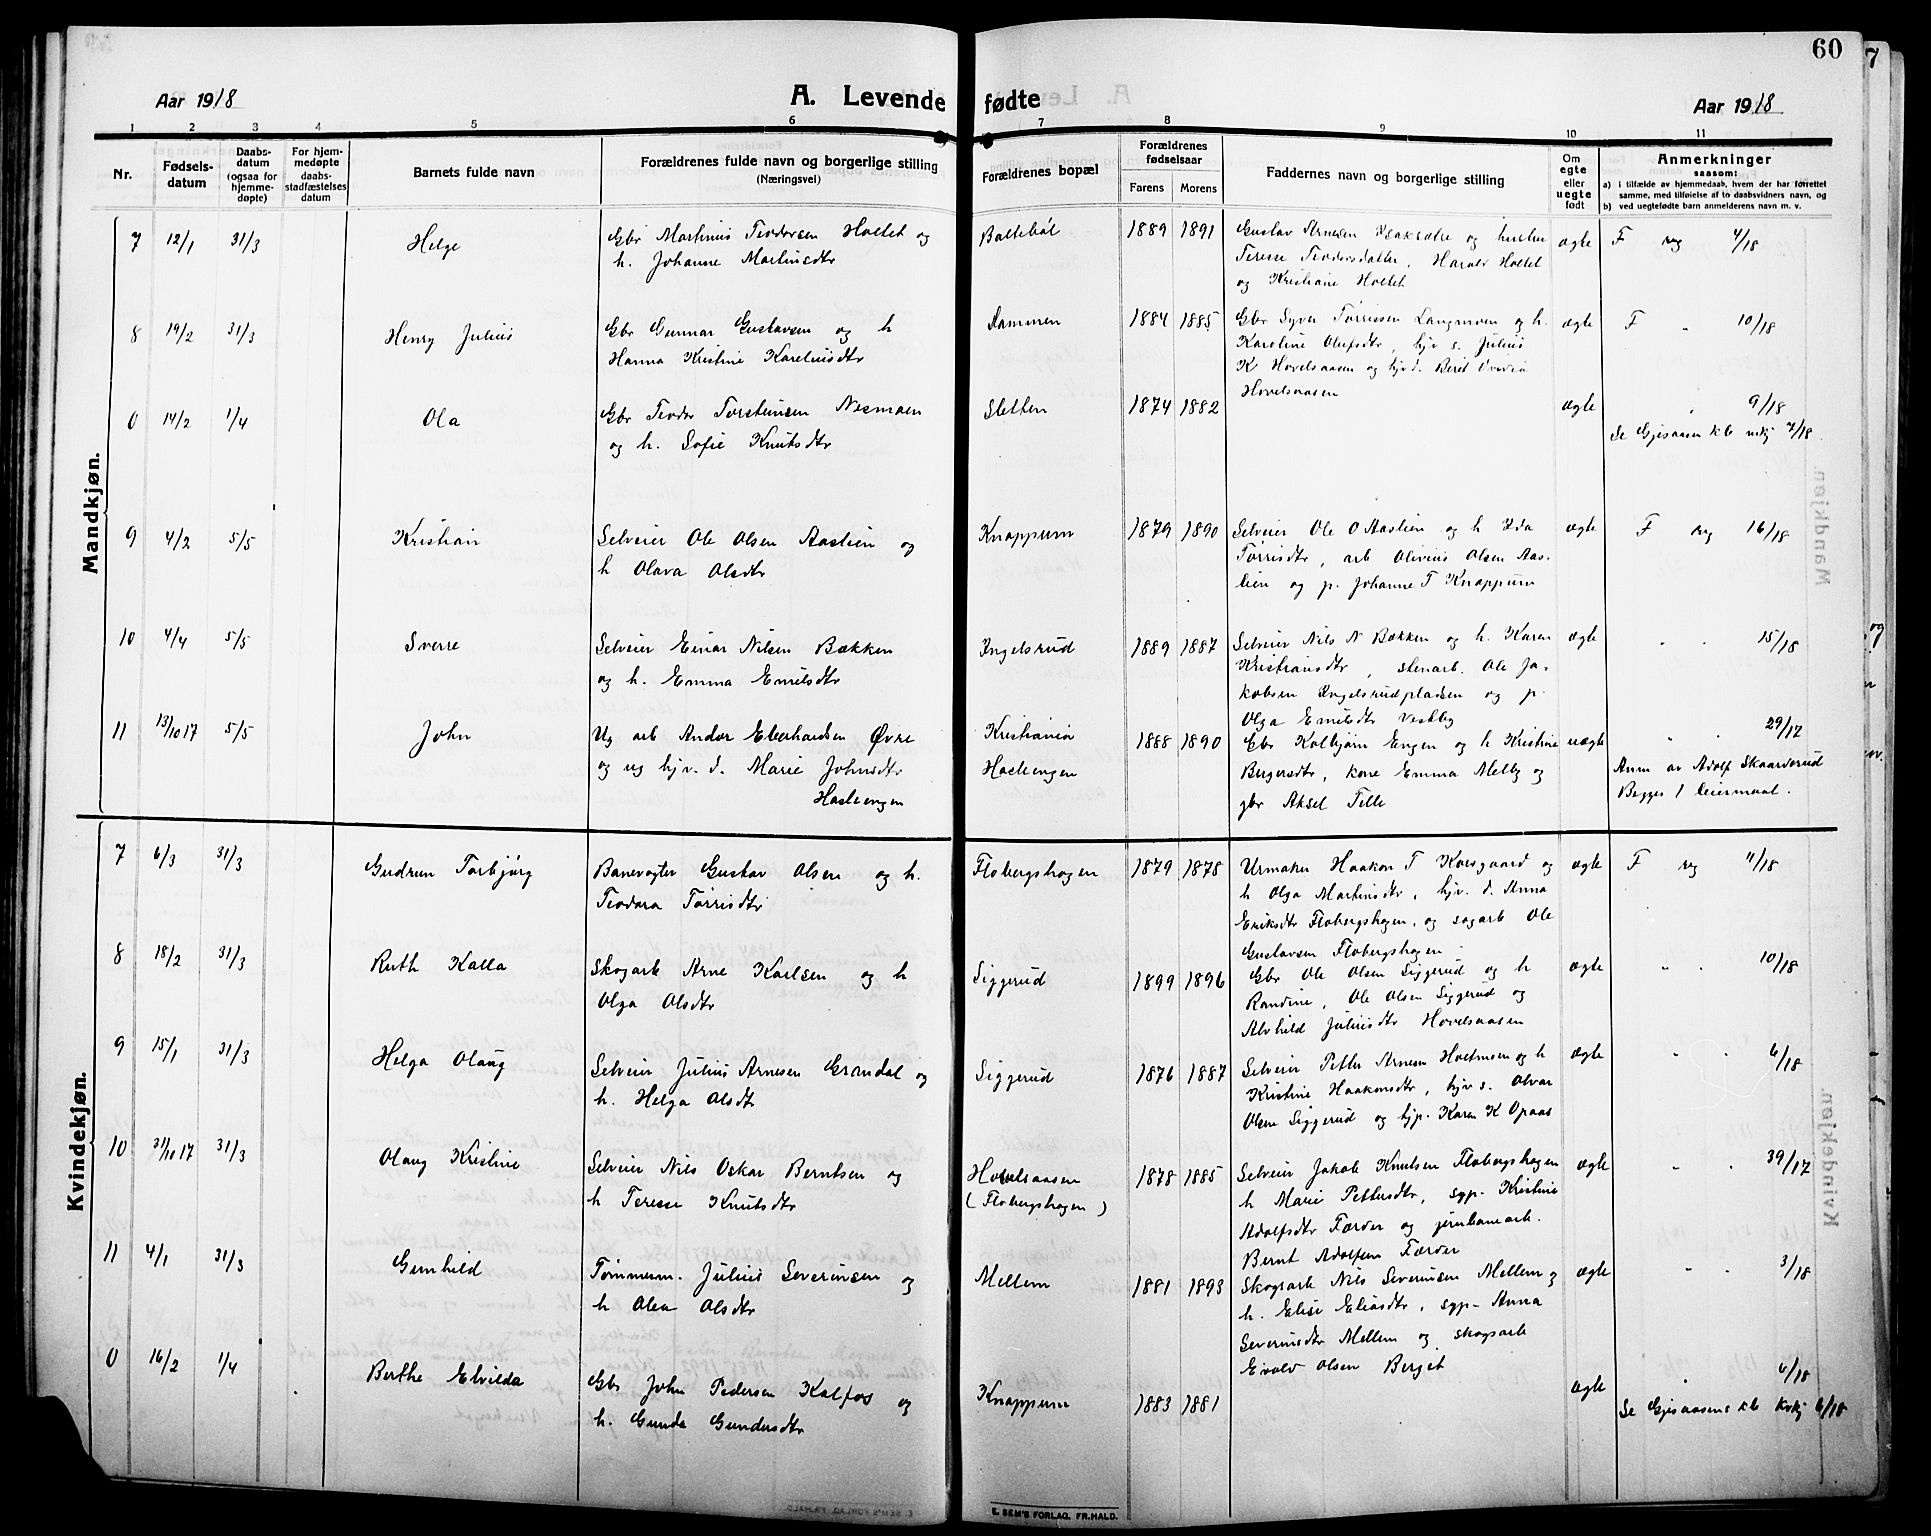 60
Aar 1918
A. Levende fødte
Aar 1918
1 2 3 4 5 6 7 8 9 10 11
Nr.
Fødsels-
datum
Daabs-
datum
(ogsaa for
hjemme-
døpte)
For hjem-
medøpte
daabs-
stadfæstelses
datum
Barnets fulde navn
Forældrenes fulde navn og borgerlige stilling
(Næringsvei)
Forældrenes bopæl
Forældrenes
fødselsaar
Farens Morens
Faddernes navn og borgerlige stilling
Om
egte
eller
uegte
født
Anmerkninger
saasom:
a) i tilfælde av hjemmedaab, hvem der har forrettet
samme, med tilføielse af to daabsvidners navn, og
b) ved uegtefødte barn anmelderens navn m. v.
Mandkjøn.
7 12/1 31/3 Helge
Gbr Martinus Teodorsen Holtet og
h. Johanne Martinsdtr
Baltebøl 1889 1891
Gustav Arnesen Isaksætre og hustru
Terese Teodorsdatter, Harald Holtet
og Kristiane Holtet
ægte F reg 4/18
8 19/2 31/3 Henry Julius
Gbr Gunnar Gustavsen og h
Hanna Kristine Kareliusdtr
Kammen 1884 1885
Gbr Syver Tørrissen Langmoen og h.
Karoline Olufsdtr, hjv s. Julius
K Hovelsaasen og hjv d. Berit Ovidia
Hovelsaasen
ægte F " 10/18
0 14/2 1/4 Ola
Gbr Teodor Torsteinsen Nesmoen
og h. Sofie Knutsdtr
Sletten 1874 1882
ægte " 9/18
Se Gjesaasen kb mkj 7/18.
9 4/2 5/5 Kristian
Selveier Ole Olsen Aaslien og
h Olava Olsdtr
Knappum 1879 1890
Selveier Ole O Aaslien og h Ida
Tørrisdtr, arb Olivius Olsen Aas-
lien og p. Johanne T Knappum
ægte F reg 16/18
10 4/4 5/5 Sverre
Selveier Einar Nilsen Bækken
og h. Emma Emilsdtr
Ingelsrud 1889 1887
Selveier Nils N Bækken og h. Karen
Kristiansdtr, stenarb. Ole Ja-
kobsen Ingelsrudpladsen og p.
Olga Emilsdtr Vestby
ægte " " 15/18
11 13/10 17 5/5 John
Ug arb Andor Eberhardsen Øvre
og ug hjv. d. Marie Johnsdtr
Hasliengen
Kristiania
Hasliengen
1888 1890
Gbr Kolbjørn Engen og h Kristine
Bergersdtr, kone Emma Melby og
gbr Aksel Telle
uægte " " 29/17
Anm av Adolf Skaarderud
Begges 1 leiermaal.
Kvindekjøn.
7 6/3 31/3 Gudrun Torbjørg
Banevogter Gustav Olsen og h.
Teodora Tørrisdtr
Flobergshagen 1879 1878
Urmaker Haakon T Korsgaard og
h Olga Martinsdtr, hjv. d. Anna
Eriksdtr Flobergshagen, og sagarb Ole
Gustavsen Flobergshagen
ægte F reg 11/18
8 18/2 31/3 Ruth Kalla
Skogarb Arne Karlsen og h
Olga Olsdtr
Siggerud 1899 1896
Gbr Ole Olsen Siggerud og h
Randine, Ole Olsen Siggerud og
Alvhild Juliusdtr Hovelsaasen
ægte " " 10/18
9 15/1 31/3 Helga Olaug
Selveier Julius Arnesen Grandal og
h. Helga Olsdtr
Siggerud 1876 1887
Selveier Petter Arnesen Holtmoen og h
Kristine Haakonsdtr, hjv s. Olvar
Olsen Siggerud og hjp. Karen K Opaas
ægte " " 6/18
10 31/10 17 31/3 Olaug Kristine
Selveier Nils Oskar Berntsen og
h Terese Knutsdtr
Hovelsaasen
(Flobergshagen)
1878 1885
Selveier Jakob Knutsen Flobergshagen
h Marie Pettersdtr, syp. Kristine
Adolfsdtr Førder og jernbanearb.
Bernt Adolfsen Førder
ægte " " 39/17
11 4/1 31/3 Gunhild
Tømmerm. Julius Severinsen og
h Olea Olsdtr
Mellem 1881 1893
Skogsarb Nils Severinsen Mellem og
h. Elise Eliasdtr, syp. Anna
Severinsdtr Mellem og skogsarb
Evald Olsen Berget
ægte " " 3/18
0 16/2 1/4 Berthe Elvilda
Gbr John Pedersen Kalfos og
h. Gunda Gundersdtr
Knappum 1883 1881
ægte " 6/18
Se Gjesaasens kb kvkj 6/18
E. SEM'S FORLAG, FR.HALD.